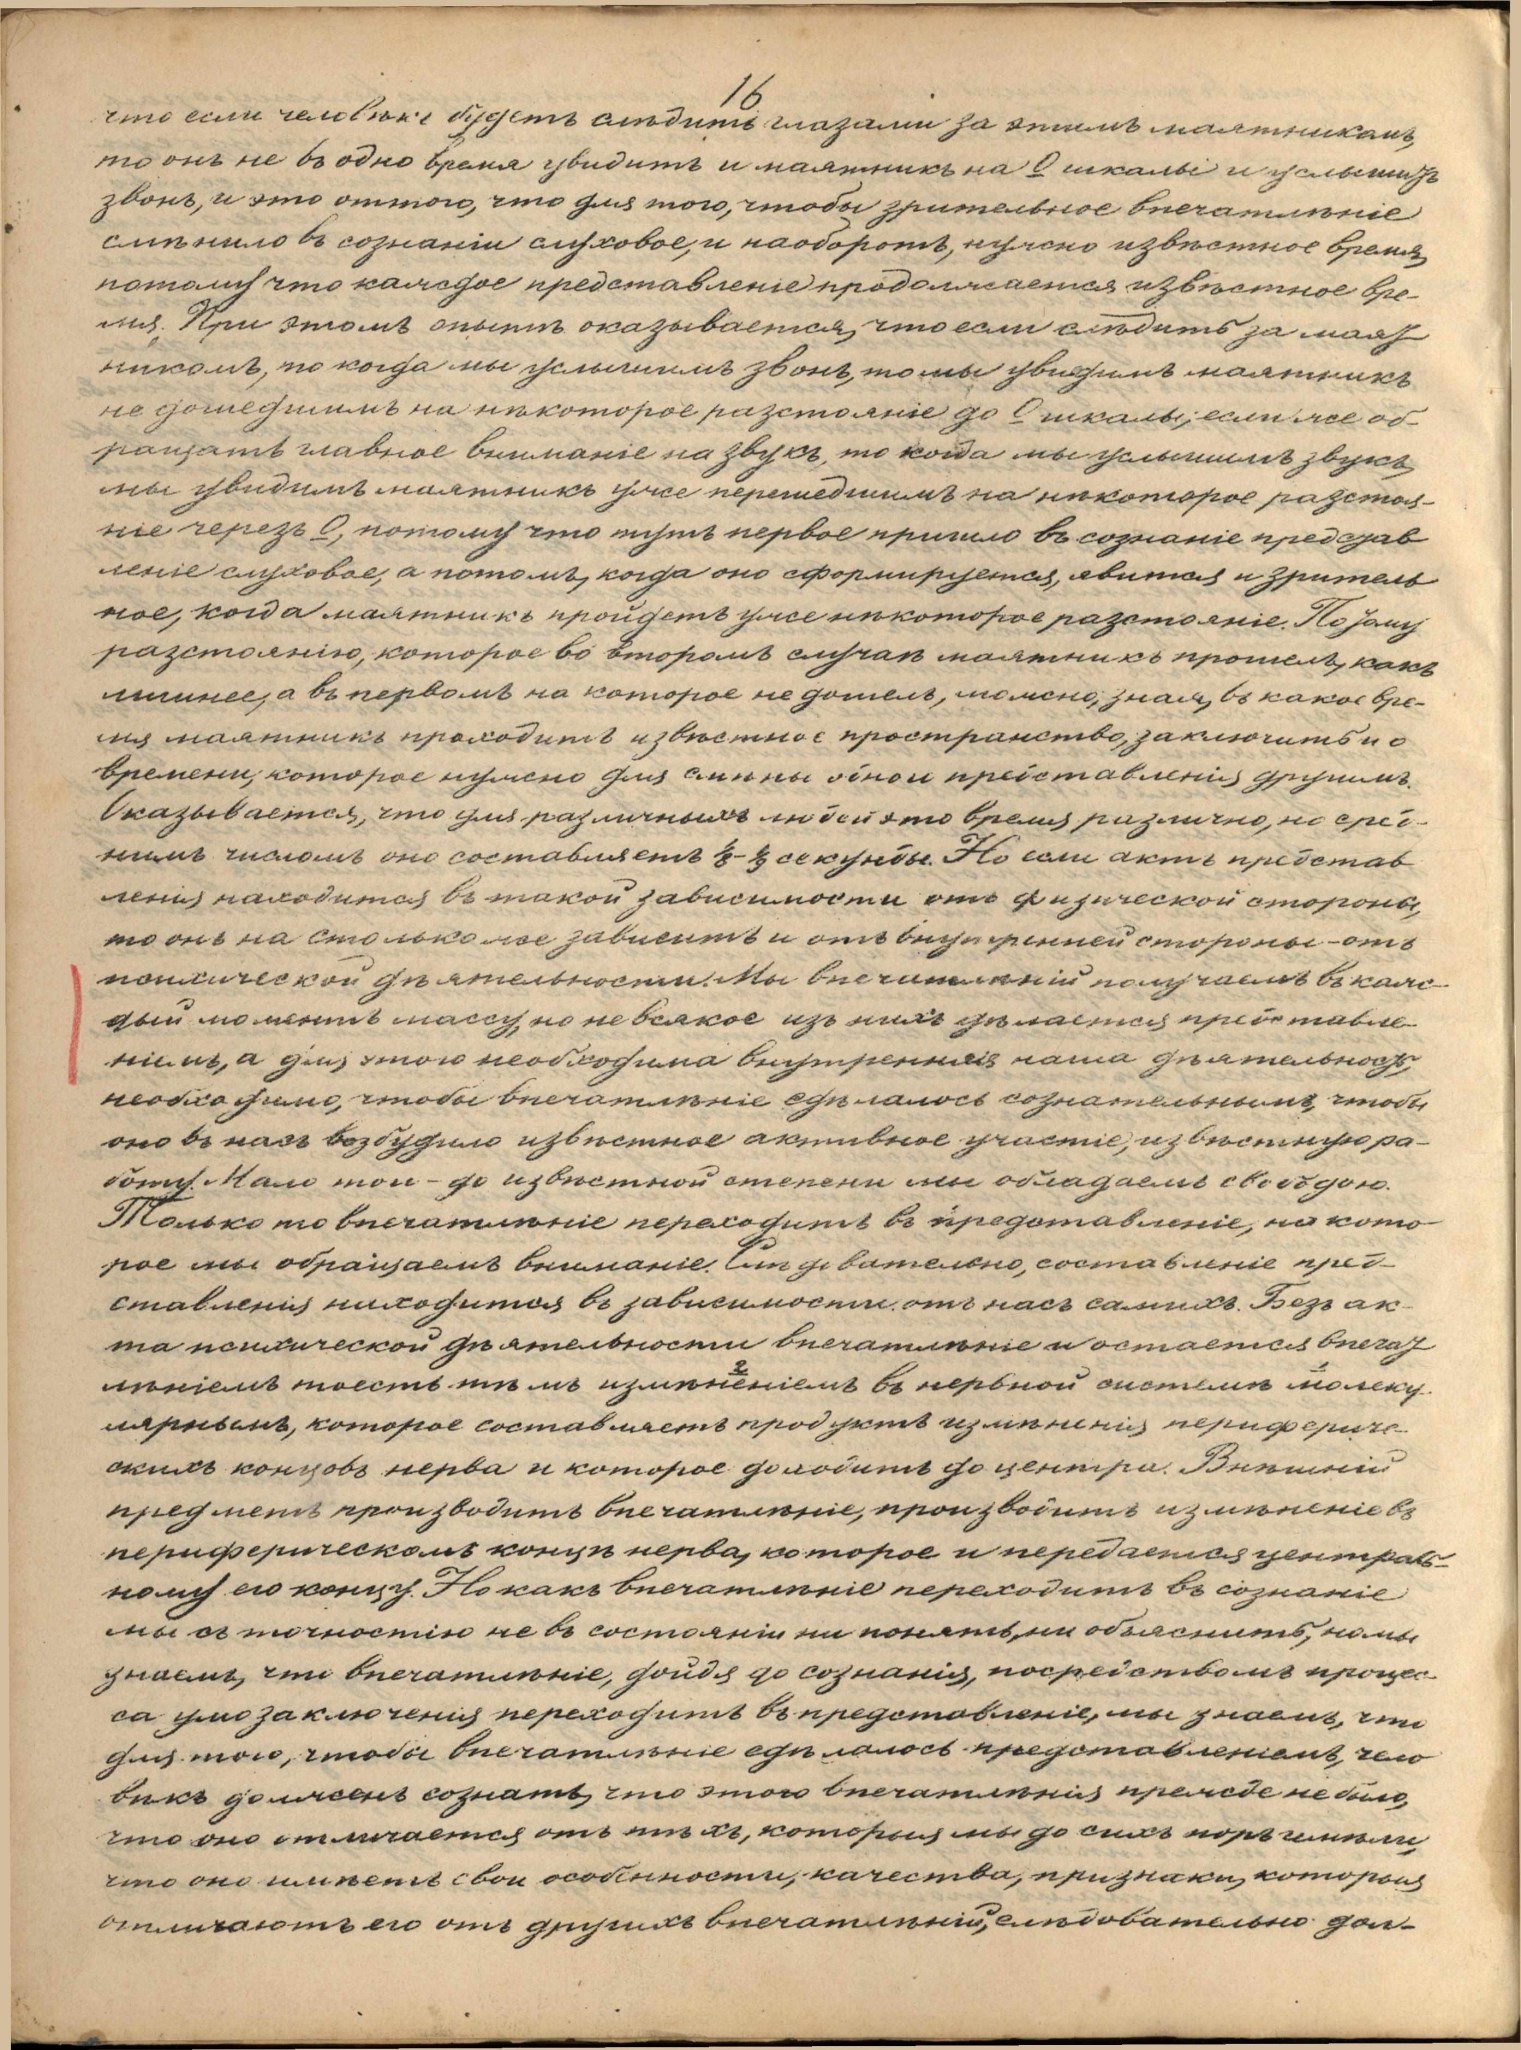 16
что если человѣкъ будетъ слѣдить глазами за этимъ маятникомъ,
то онъ не въ одно время увидитъ и маятникъ на 0 шкалы и услышитъ
звонъ, и это оттого, что для того, чтобы зрительное впечатлѣніе
смѣнило въ сознаніи слуховое, и наоборотъ, нужно извѣстное время,
потому что каждое представленіе продолжается извѣстное вре-
мя. При этомъ опытѣ оказывается, что если слѣдить за маят
никомъ, то когда мы услышимъ звонъ, то мы увидимъ маятникъ
не дошедшимъ на нѣкоторое разстояніе до 0 шкалы; если же об-
ращать главное вниманіе на звукъ, то когда мы услышимъ звукъ,
мы увидимъ маятникъ уже перешедшимъ на нѣкоторое разстоя-
ніе черезъ 0, потому что тутъ первое пришло въ сознаніе представ
леніе слуховое, а потомъ, когда оно сформируется, явится и зритель
ное, когда маятникъ пройдетъ уже нѣкоторое разстояніе. По тому
разстоянію, которое во второмъ случаѣ маятникъ прошелъ, какъ
лишнее, а въ первомъ на которое не дошелъ, можно, зная, въ какое вре-
мя маятникъ проходитъ извѣстное пространство, заключить и о
времени, которое нужно для смѣны одного представленія другимъ.
Оказывается, что для различныхъ людей это время различно, но сред-
нимъ числомъ оно составляетъ 1/8-1/9 секунды. Но если актъ представ
ленія находится въ такой зависимости отъ физической стороны,
то онъ на столько же зависитъ и отъ внутренней стороны - отъ
психической дѣятельности. Мы впечатлѣній получаемъ въ каж-
дый моментъ массу, но не всякое изъ нихъ дѣлается представле-
ніемъ, а для этого необходима внутренняя наша дѣятельность,
необходимо, чтобы впечатлѣніе сдѣлалось сознательнымъ, чтобы
оно въ насъ возбудило извѣстное активное участіе, извѣстную ра-
боту. Мало того - до извѣстной степени мы обладаемъ свободою.
Только то впечатлѣніе переходитъ въ представленіе, на кото-
рое мы обращаемъ вниманіе. Слѣдовательно, составленіе пред-
ставленія находится въ зависимости отъ насъ самихъ. Безъ ак-
та психической дѣятельности впечатлѣніе и остается впечат
лѣніемъ тоесть тѣмъ измѣненіемъ 2 въ нервной системѣ молеку-
лярнымъ, которое составляетъ продуктъ измѣненія перифериче-
скихъ концовъ нерва и которое доходитъ до центра. Внѣшній
предметъ производитъ впечатлѣніе, производитъ измѣненіе въ
периферическомъ концѣ нерва, которое и передается централь-
ному его концу. Но какъ впечатлѣніе переходитъ въ сознаніе
мы съ точностію не въ состояніи ни понять, ни объяснить, но мы
знаемъ, что впечатлѣніе, дойдя до сознанія, посредствомъ процес-
са умозаключенія переходитъ въ представленіе, мы знаемъ, что
для того, чтобы впечатлѣніе сдѣлалось представленіемъ, чело
вѣкъ долженъ сознать, что этого впечатлѣнія прежде не было,
что оно отличается отъ тѣхъ, которыя мы до сихъ поръ имѣли,
что оно имѣетъ свои особенности, качества, признаки, которыя
отличаютъ его отъ другихъ впечатлѣній, слѣдовательно дол-